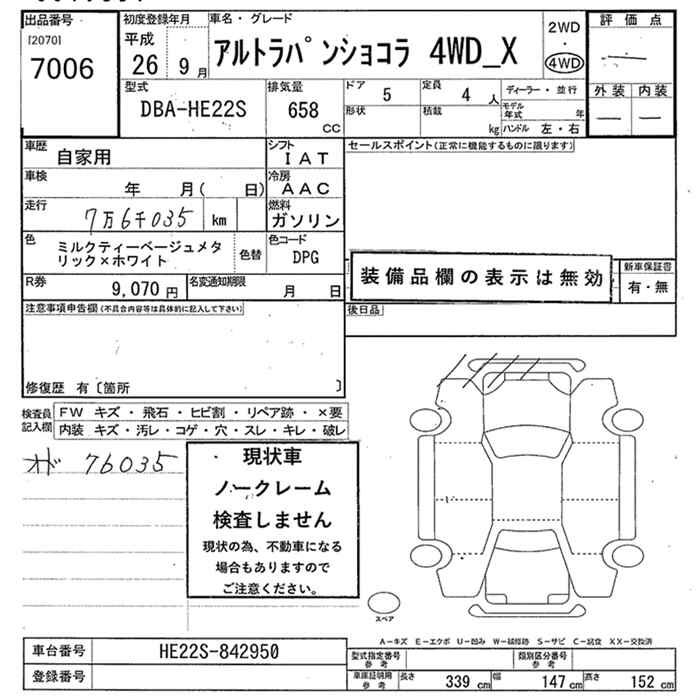 出品番号
[2070]
7006
初度登録年月
平成
26 9 月
車名・グレード
アルトラパンショコラ 4WD_X
2WD
・
4WD
評価点
外装 内装
型式
DBA-HE22S
排気量
658
CC
ドア
5
定員
4 人
形状
積載
kg
ディーラー・並行
モデル年式 年
ハンドル 左・右
車歴
自家用
シフト
IAT
セールスポイント(正常に機能するものに限ります)
車検
年 月( 日)
冷房
AAC
走行
7万6千035 km
燃料
ガソリン
色
ミルクティーベージュメタ
リック×ホワイト
色替
色コード
DPG
装備品欄の表示は無効
新車保証書
有・無
R券
9,070 円
名変通知期限
月 日
注意事項申告欄(不具合内容等は具体的に記入して下さい)
後日品
修復歴 有〔箇所 〕
検査員
記入欄
FW キズ・飛石・ヒビ割・リペア跡・×要
内装 キズ・汚レ・コゲ・穴・スレ・キレ・破レ
オド 76035
現状車
ノークレーム
検査しません
現状の為、不動車になる
場合もありますので
ご注意ください。
スペア
A－キズ E－エクボ U－凹み W－補修跡 S－サビ C－腐食 XX－交換済
車台番号
HE22S-842950
登録番号
型式指定番号
参考
類別区分番号
参考
車庫証明用
参考
長さ 339 cm
幅 147 cm
高さ 152 cm